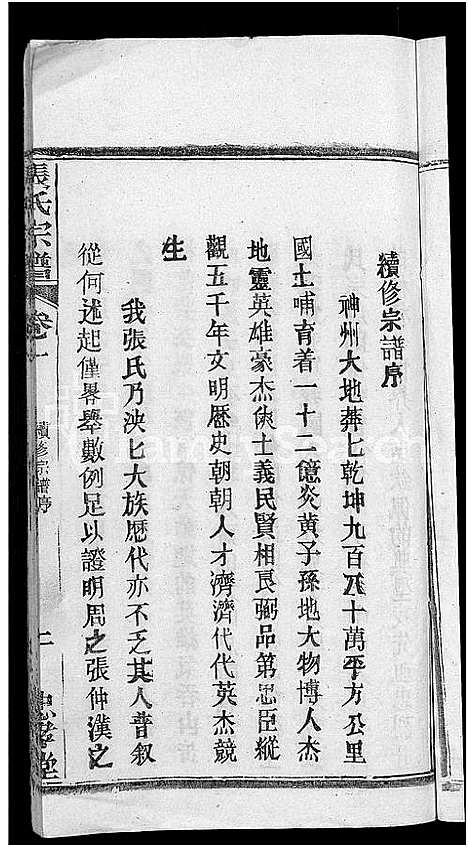 續修宗譜序
神州大地莽匕乾坤九百六十萬平方公里
國土哺育着一十二億炎黃子孫地大物博人杰
地靈英雄豪杰俠士義民賢相良弼品第忠臣縱
觀五千年文明歷史朝朝人才濟濟代代英杰競
生
我張氏乃泱匕大族歷代亦不乏其人普叙
從何述起僅畧舉數例足以證明周之張仲漢之
張氏宗譜
卷一
續修宗譜序
一
忠孝堂